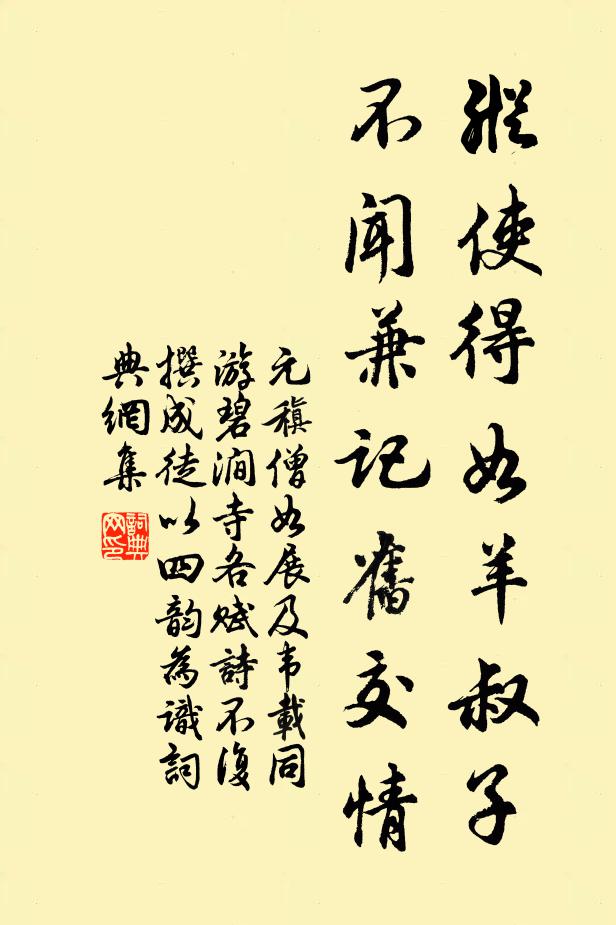 縱使得如羊叔子
不聞兼記舊交情
元稹僧如展及韋載同
游碧澗寺各賦詩不復
撰成徒以四韻為識詞
典網集
詞典网印